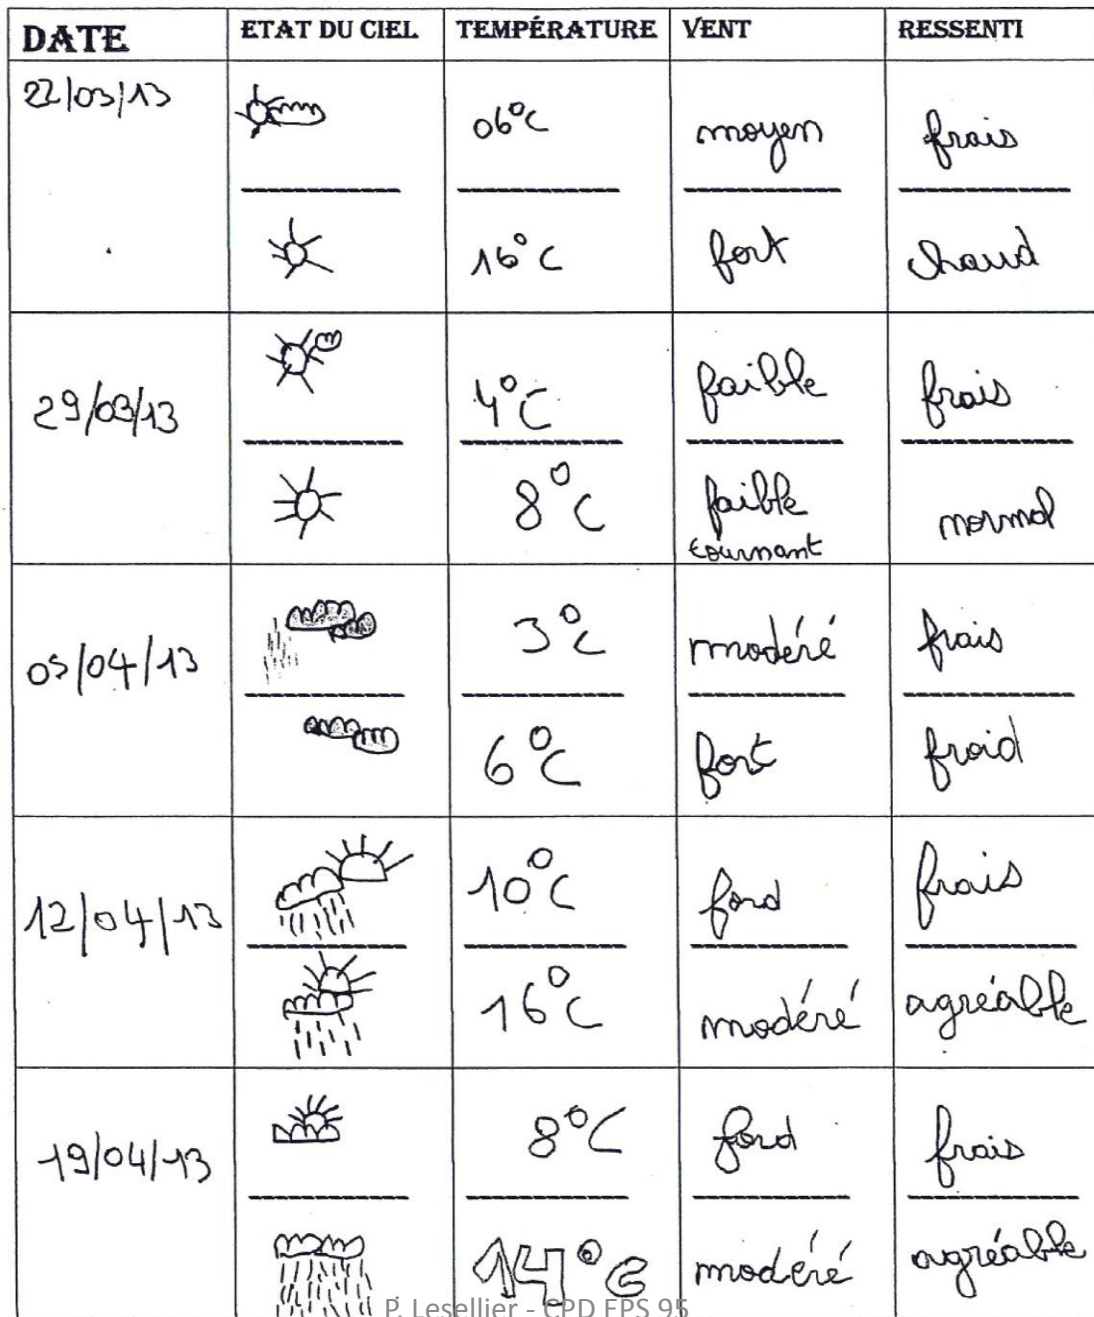 DATE ETAT DU CIEL TEMPÉRATURE VENT RESSENTI
22/03/13 06°C moyen frais
16°C fort chaud
29/03/13 4°C faible frais
8°C faible tournant normal
05/04/13 3°C modéré frais
6°C fort froid
12/04/13 10°C ford frais
16°C modéré agréable
19/04/13 8°C ford frais
14°C modéré agréable
P. Lesellier - CPD EPS 95